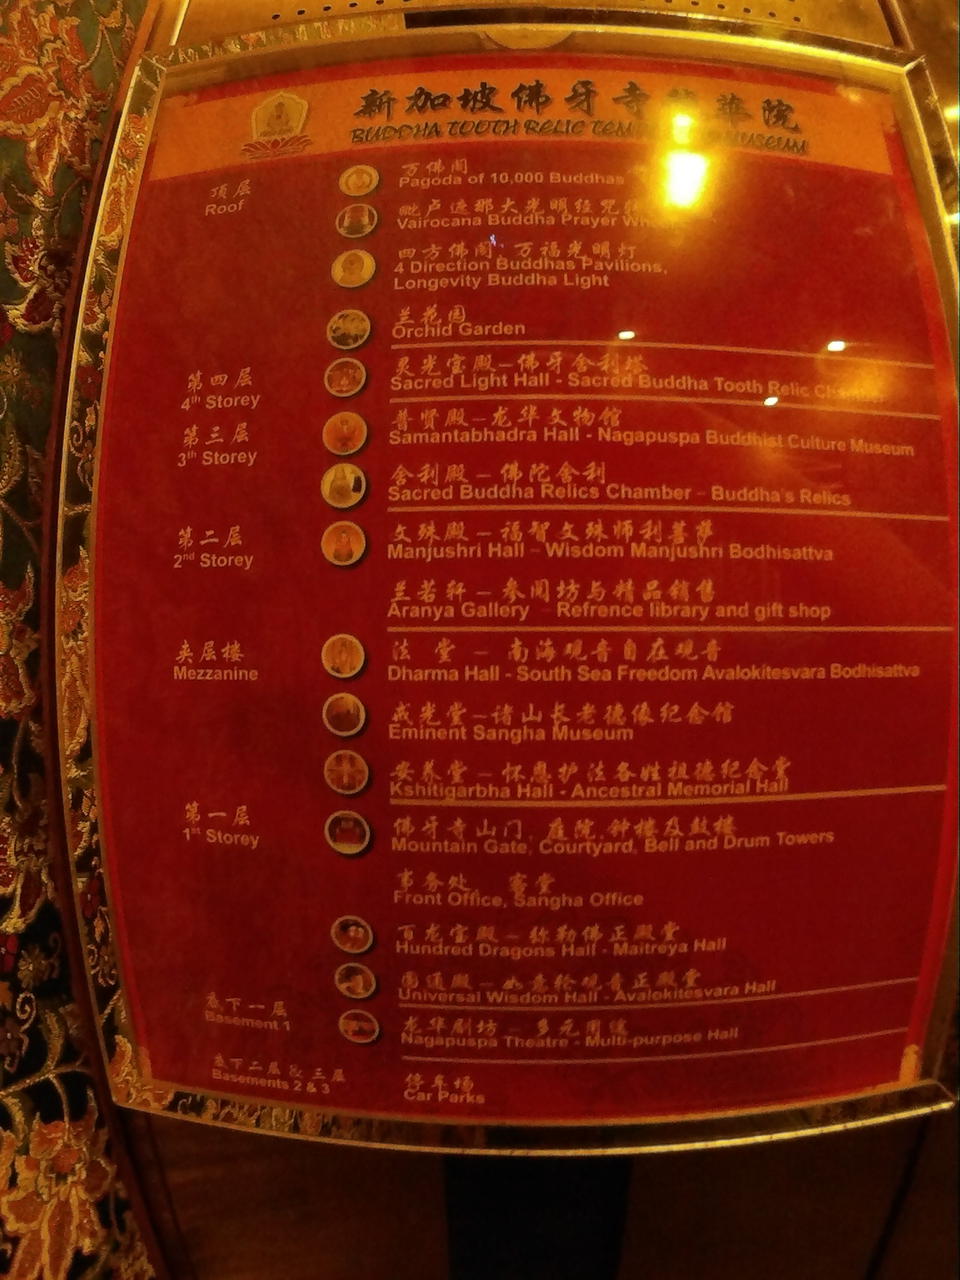 新加坡佛牙寺 華院
BUDDHA TOOTH RELIC MUSEUM
顶层
Roof
万佛阁
Pagoda of 10,000 Buddhas
毗卢遮那大光明经咒
Vairocana Buddha Prayer
四方佛阁, 万福光明灯
4 Direction Buddhas Pavilions,
Longevity Buddha Light
兰花园
Orchid Garden
第四层
4th Storey
灵光宝殿–佛牙舍利塔
Sacred Light Hall - Sacred Buddha Tooth Relic Chamber
第三层
3th Storey
普贤殿–龙华文物馆
Samantabhadra Hall - Nagapuspa Buddhist Culture Museum
舍利殿 – 佛陀舍利
Sacred Buddha Relics Chamber - Buddha's Relics
第二层
2nd Storey
文殊殿 – 福智文殊师利菩萨
Manjushri Hall - Wisdom Manjushri Bodhisattva
兰若轩 – 参阅坊与精品销售
Aranya Gallery - Refrence library and gift shop
夹层楼
Mezzanine
法 堂 – 南海观音自在观音
Dharma Hall - South Sea Freedom Avalokitesvara Bodhisattva
戒光堂–诸山长老德像纪念馆
Eminent Sangha Museum
安养堂 – 怀恩护法各姓祖德纪念堂
Kshitigarbha Hall - Ancestral Memorial Hall
第一层
1st Storey
佛牙寺山门, 庭院, 钟楼及鼓楼
Mountain Gate, Courtyard, Bell and Drum Towers
事务处, 客堂
Front Office, Sangha Office
百龙宝殿 – 弥勒佛正殿堂
Hundred Dragons Hall - Maitreya Hall
圆通殿 – 如意轮观音正殿堂
Universal Wisdom Hall - Avalokitesvara Hall
底下一层
Basement 1
龙华剧坊 – 多元用途
Nagapuspa Theatre - Multi-purpose Hall
底下二层 & 三层
Basements 2 & 3
停车场
Car Parks